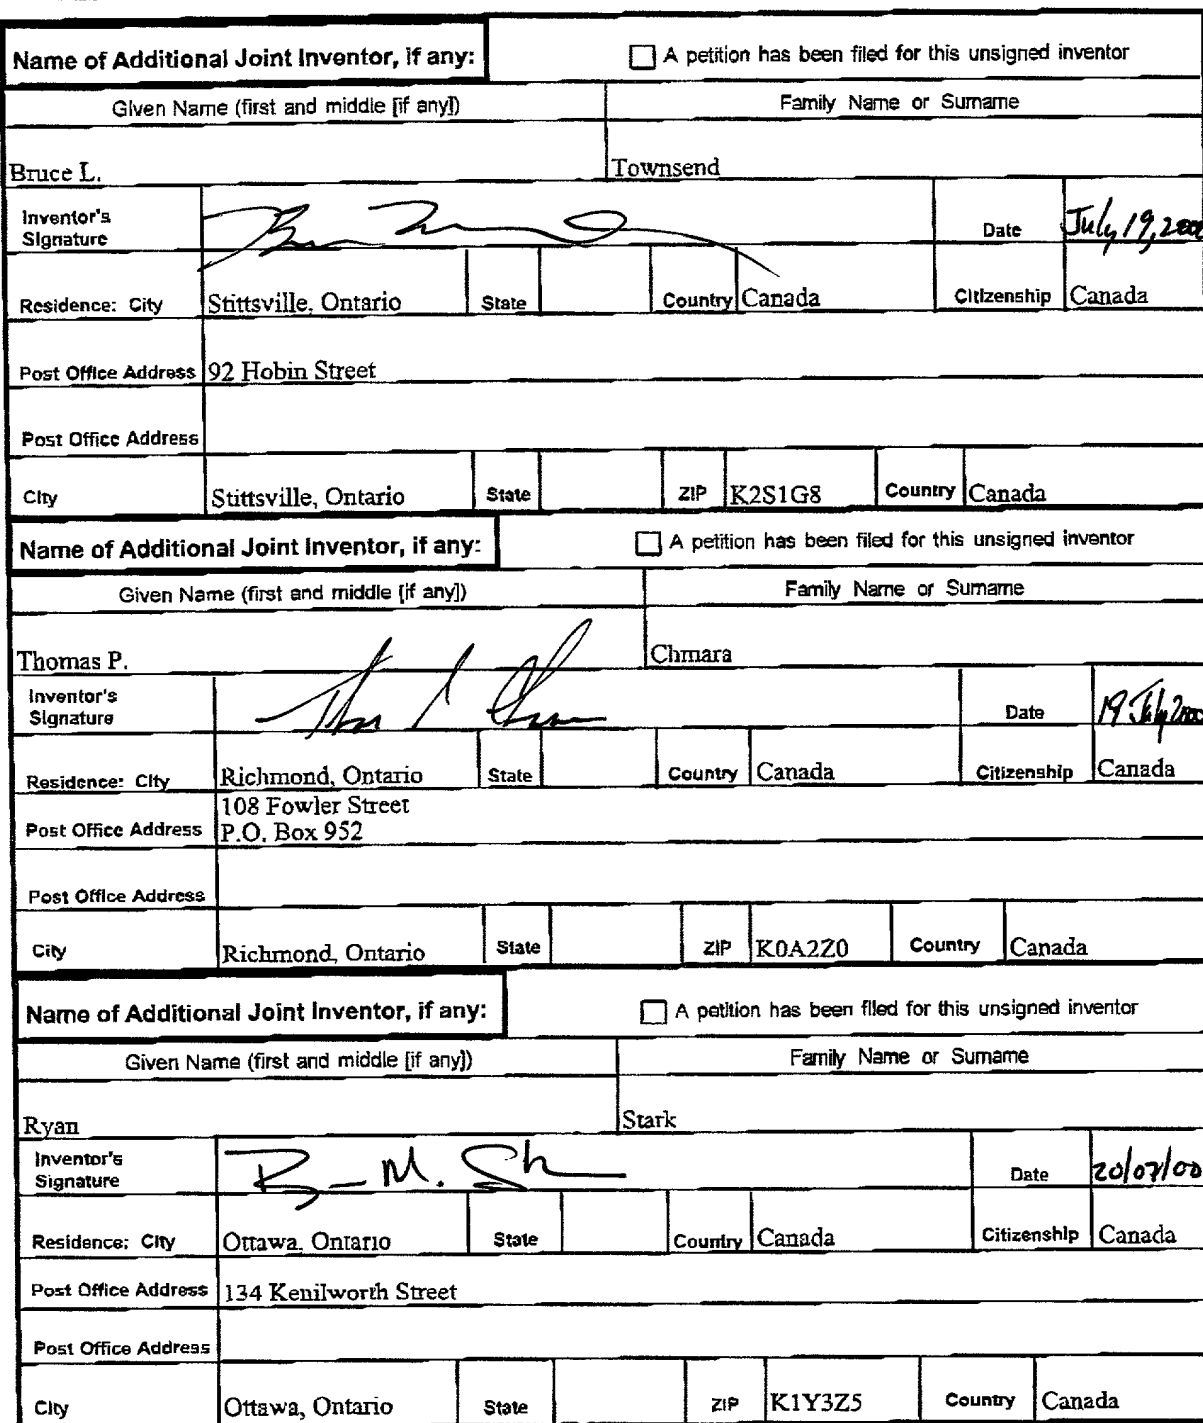 Name of Additional Joint Inventor, if any: A petition has been filed for this unsigned inventor
Given Name (first and middle [if any]) Family Name or Surname
Bruce L. Townsend
Inventor's Signature Date July 19, 2000
Residence: City Stittsville, Ontario State Country Canada Citizenship Canada
Post Office Address 92 Hobin Street
Post Office Address
City Stittsville, Ontario State ZIP K2S1G8 Country Canada
Name of Additional Joint Inventor, if any: A petition has been filed for this unsigned inventor
Given Name (first and middle [if any]) Family Name or Surname
Thomas P. Chmara
Inventor's Signature Date 19 July 2000
Residence: City Richmond, Ontario State Country Canada Citizenship Canada
108 Fowler Street
Post Office Address P.O. Box 952
Post Office Address
City Richmond, Ontario State ZIP K0A2Z0 Country Canada
Name of Additional Joint Inventor, if any: A petition has been filed for this unsigned inventor
Given Name (first and middle [if any]) Family Name or Surname
Ryan Stark
Inventor's Signature Date 20/07/00
Residence: City Ottawa, Ontario State Country Canada Citizenship Canada
Post Office Address 134 Kenilworth Street
Post Office Address
City Ottawa, Ontario State ZIP K1Y3Z5 Country Canada